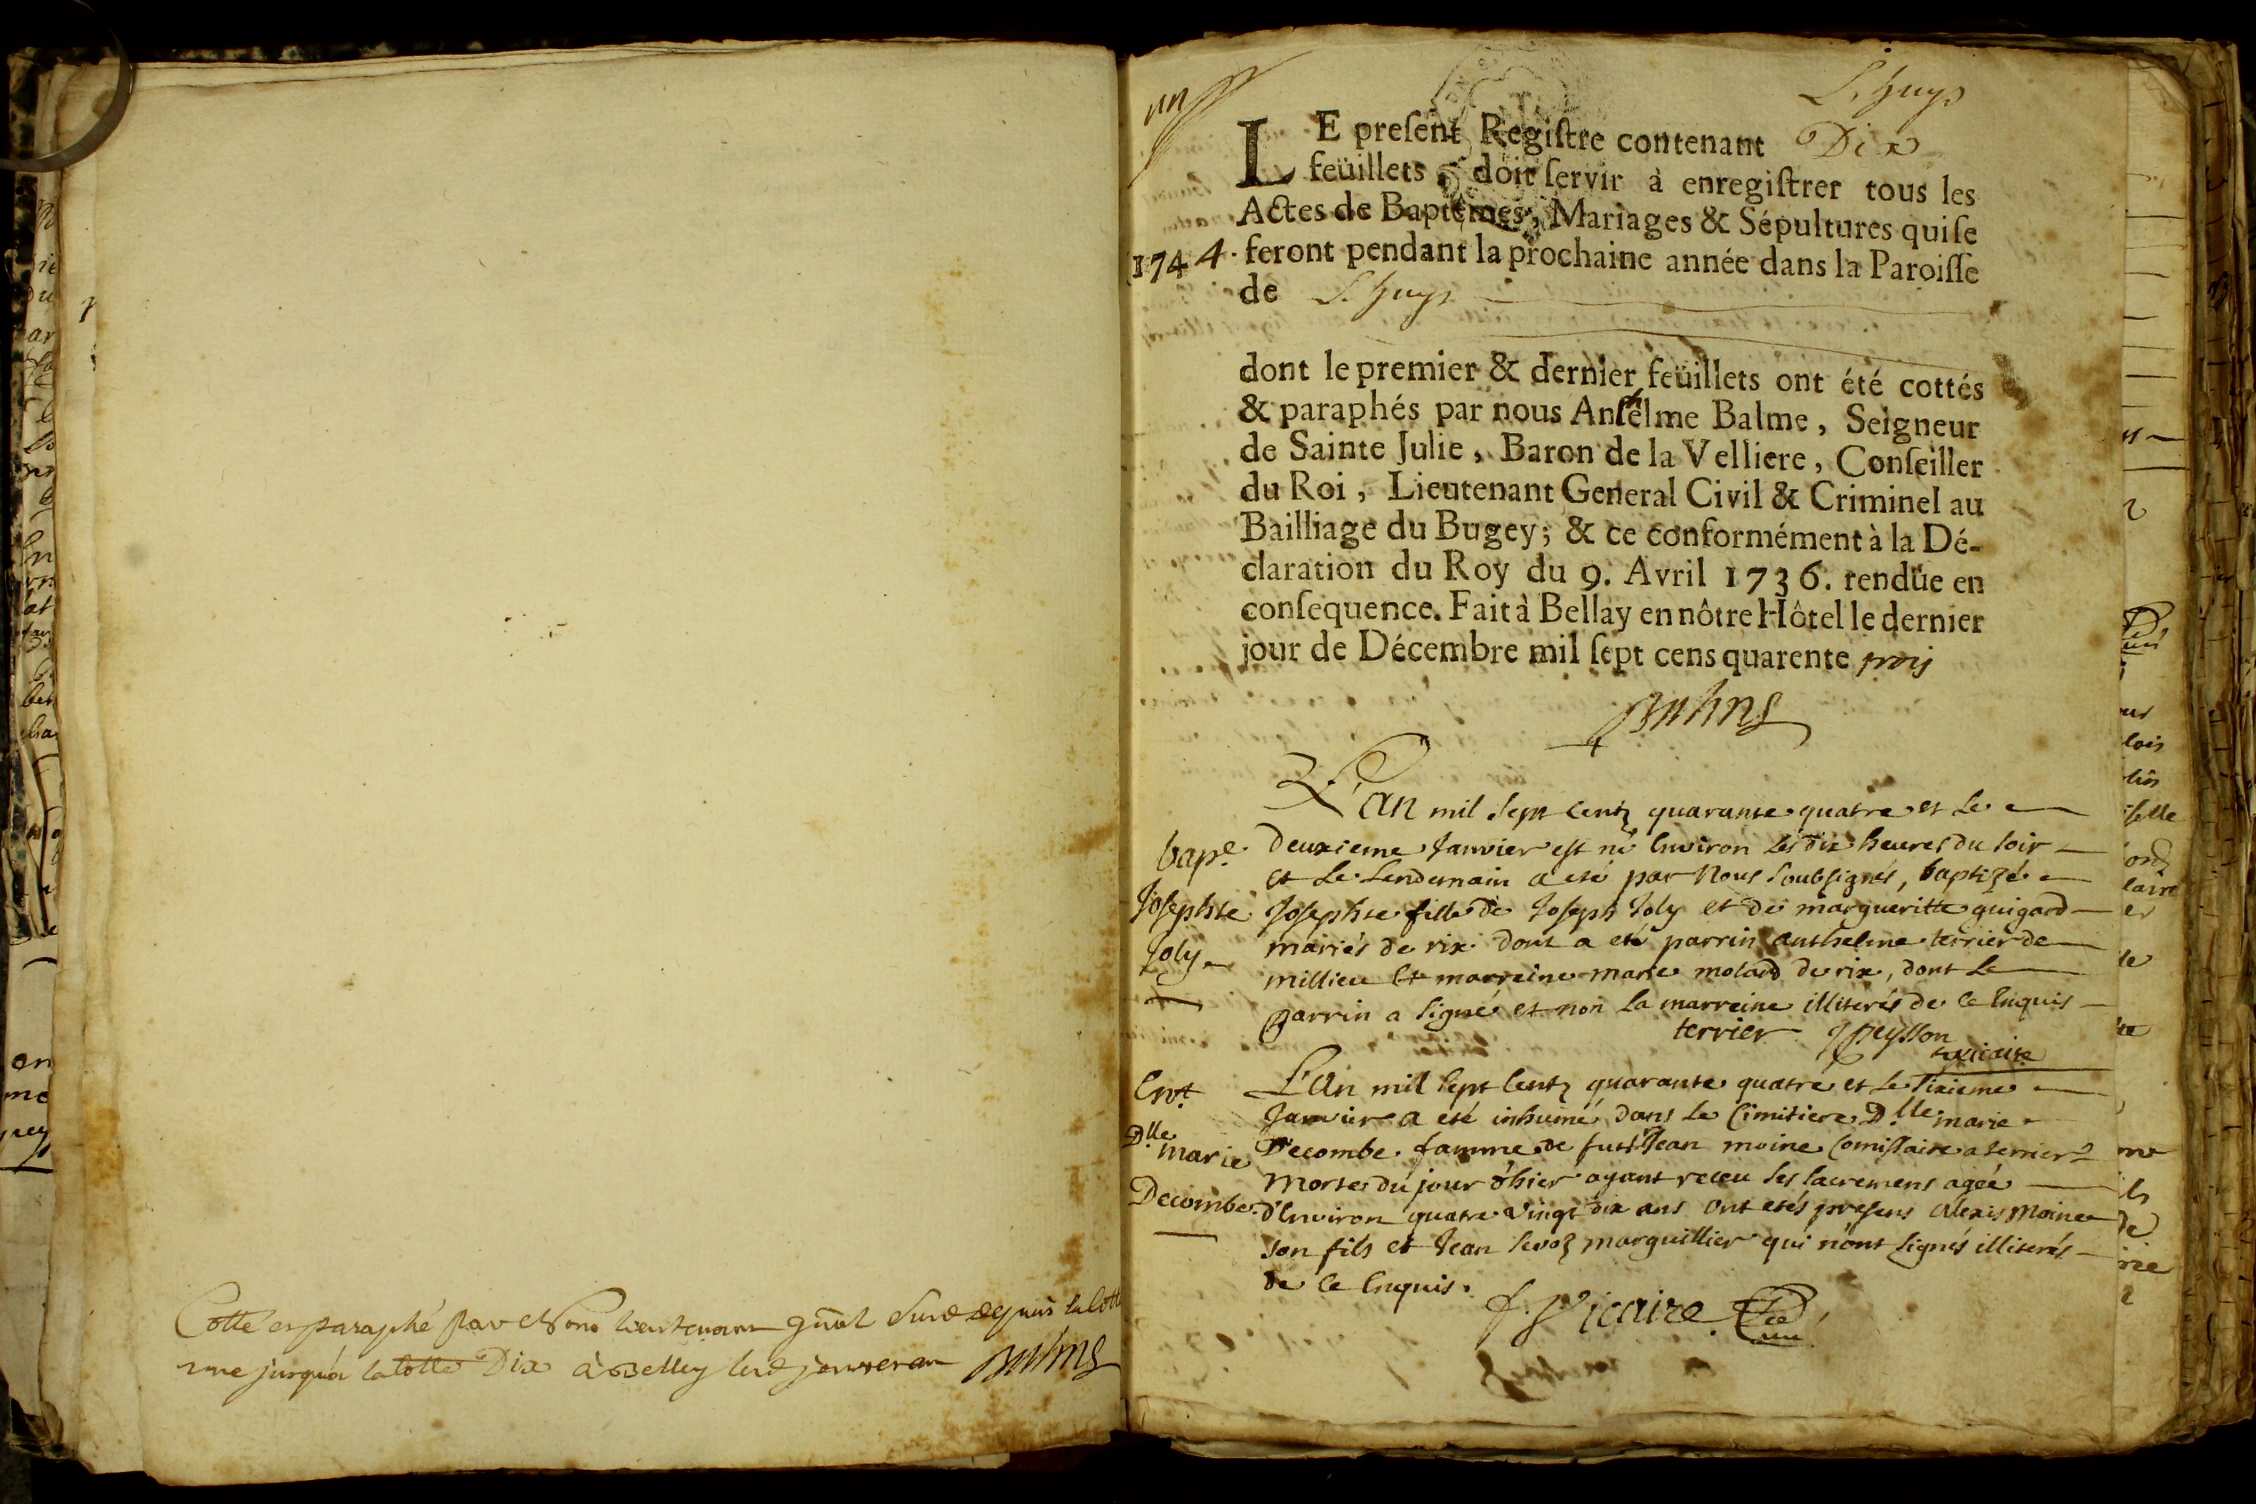 Cotte et paraphé par Nous Lieutenant depuis la Cotte
une jusqu'a la Cotte Dix à Belley
un
L'huys
LE preſent Regiſtre contenant Dix
feüillets, doit ſervir à enregiſtrer tous les
Actes de Baptêmes, Mariages & Sépultures qui ſe
1744. feront pendant la prochaine année dans la Paroiſſe
de L'huys
dont le premier & dernier feüillets ont été cottés
& paraphés par nous Anthelme Balme, Seigneur
de Sainte Julie, Baron de la Velliere, Conſeiller
du Roi, Lieutenant General Civil & Criminel au
Bailliage du Bugey; & ce conformément à la Dé-
claration du Roy du 9. Avril 1736. rendüe en
conſequence. Fait à Bellay en nôtre Hôtel le dernier
jour de Décembre mil ſept cens quarente trois
L'an mil sept centz quarante quatre et le
bap.e deuxieme Janvier est né Environ les dix heures du soir
et le lendemain a eté par Nous soubsignés, baptizé
Josephte Josephte fille de Joseph Joly et de margueritte guigard
Joly mariés de rix dont a eté parrin anthelme terrier de
millieu Et marreine marie molard de rix, dont le
parrin a signé et non la marreine illiterés de ce Enquis
terrier J peysson
vicaire
Ent. L'an mil sept Centz quarante quatre et le sixieme
Janvier a eté inhumé dans le Cimitiere D.lle marie
D.lle marie Decombe famme de fust Jean moine Comissaire a terrier
Decombe. Morte du jour d'hier ayant receu les sacremens agée
d'Environ quatre vingt dix ans ont etés presens alexis Moine
son fils et Jean levoz marguillier qui n'ont signés illiterés
de ce Enquis.
Vicaire